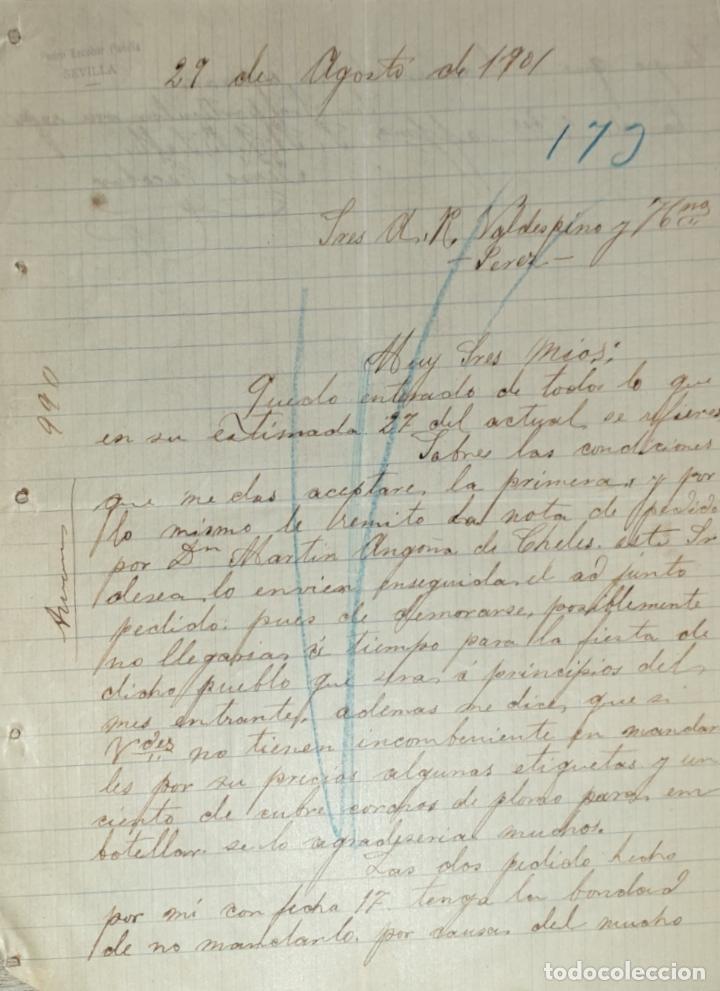 SEVILLA
29 de Agosto de 1901
173
Sres A. R. Valdespino y Hno
- Jerez -
Muy Sres mios:
Quedo enterado de todos lo que
en su estimada 27 del actual se refieres
Sobres las condiciones
que me das aceptare, la primera, y por
lo mismo le remito la nota de pedido
por Dn Martin Angoña de Cheles. este Sr
desea, lo envien enseguida, el ad junto
pedido: pues de demorarse, posiblemente
no llegarias á tiempo para la fiesta de
dicho pueblo que sera, á principios del
mes entrante, ademas me dice, que si
Vdes no tienen incombeniente en mandar
les por su precios algunas etiquetas y un
ciento de cubre corchos de plomo para, em
botellar. se lo agradeseria muchos.
Las dos pedido hecho
por mi con fecha 17. tenga la bondad
de no mandarlo, por causas del mucho
990
todocoleccion